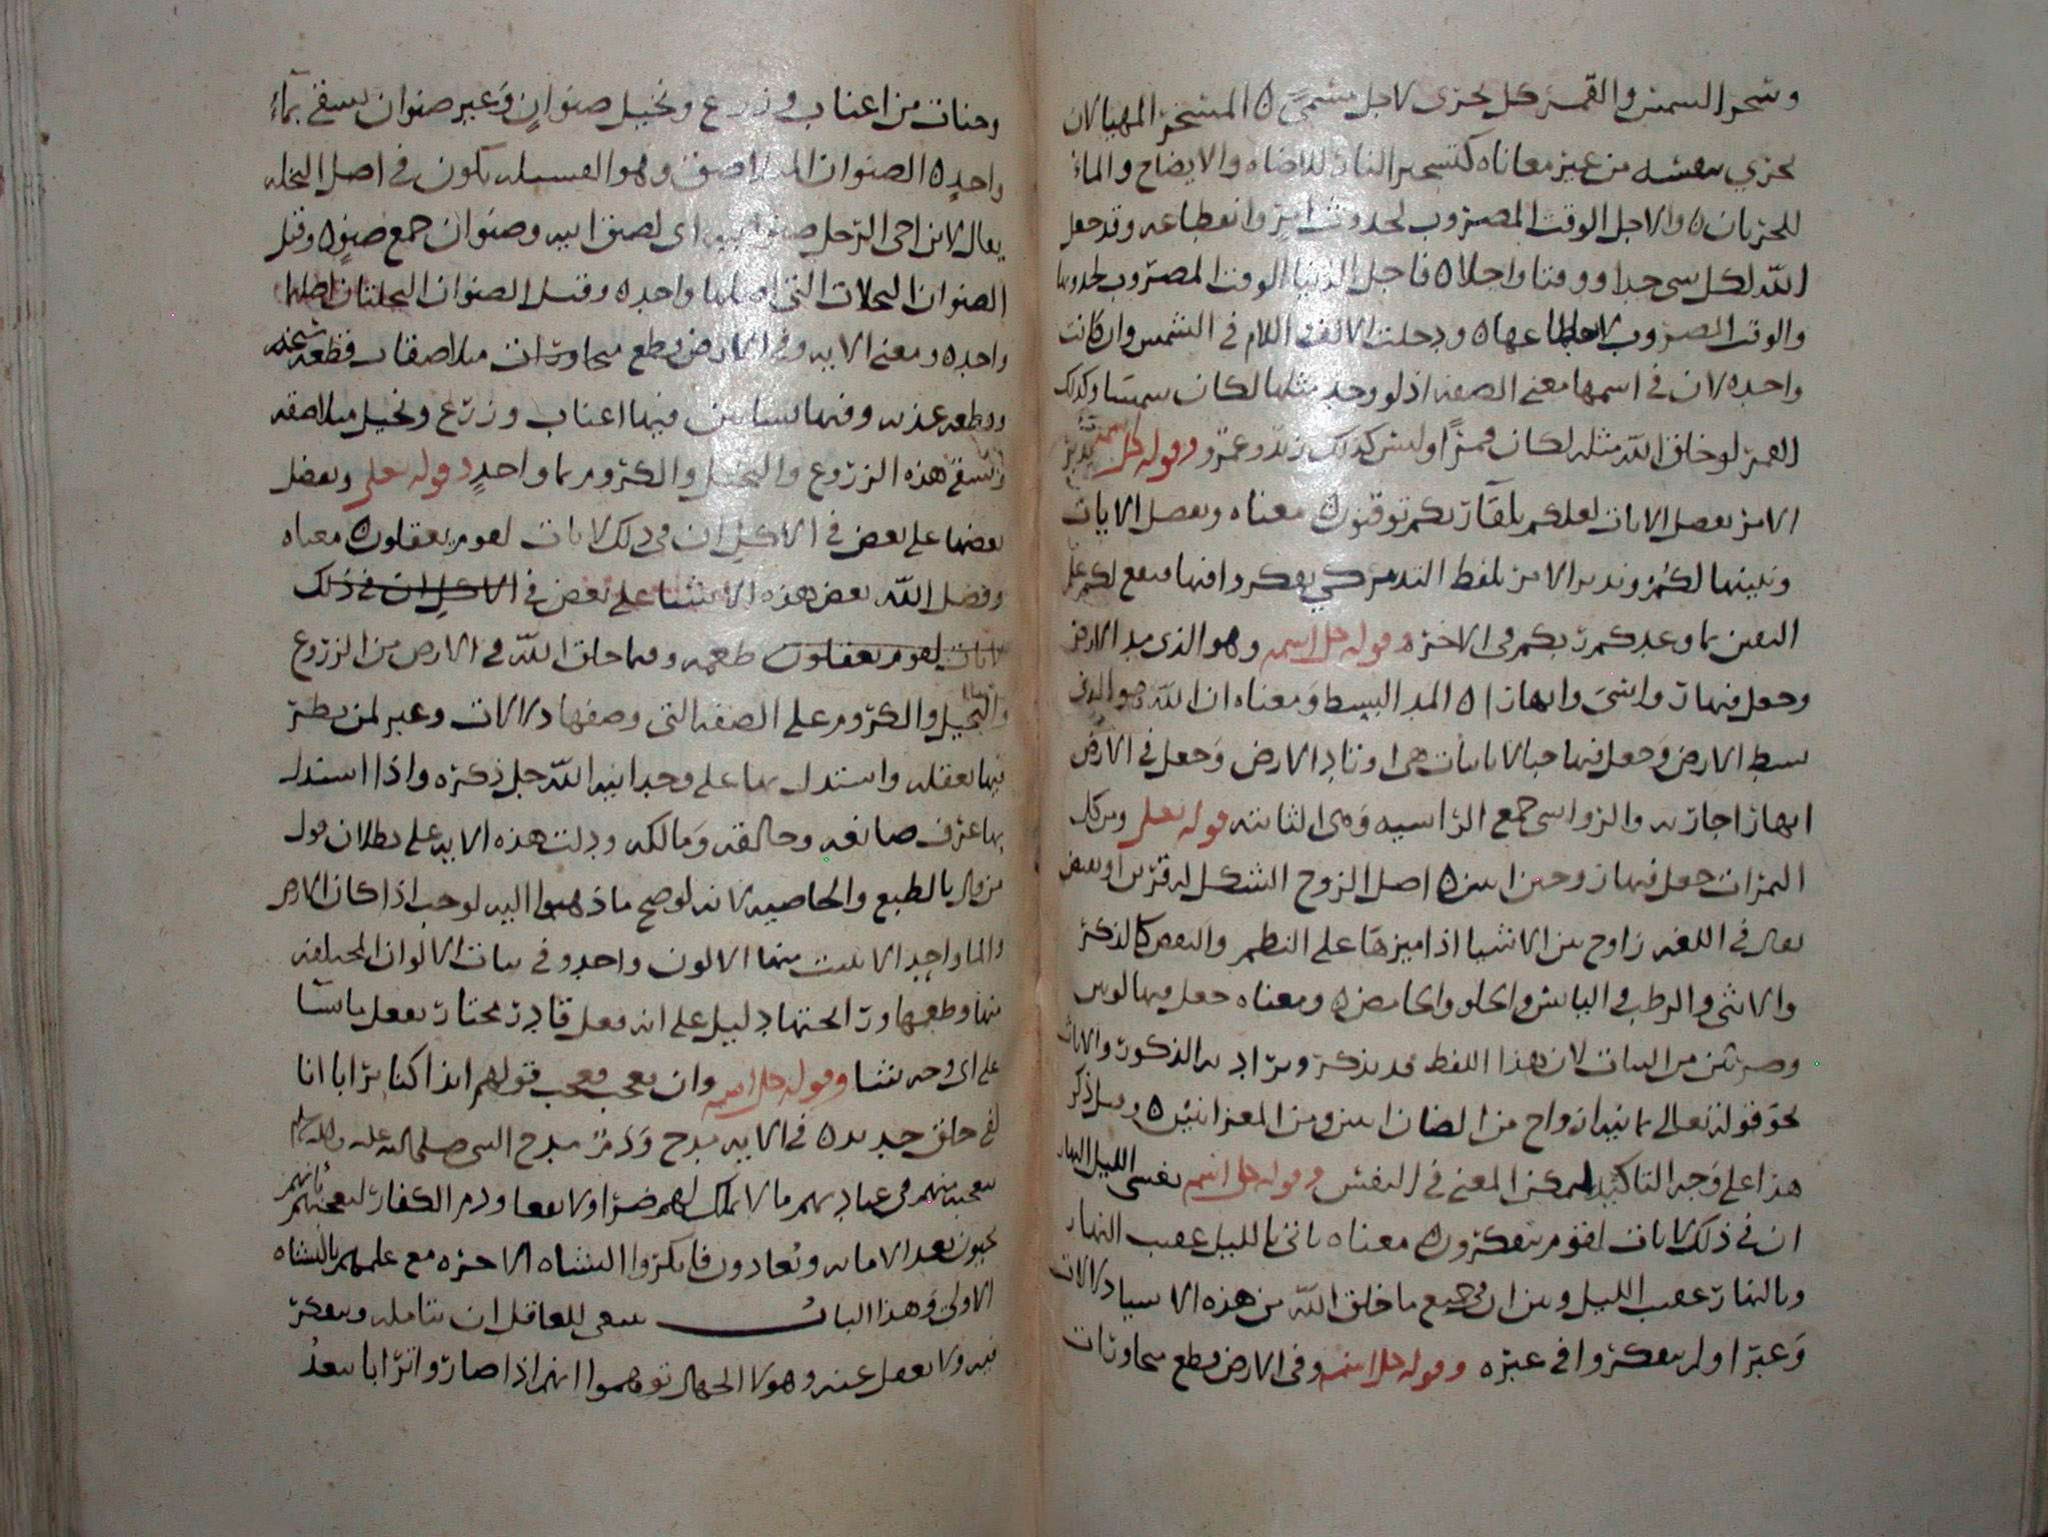 وسخر الشمس والقمر كل يجرى لاجل مسمى ه المسخر المهيا لان
يجري بنفسه من غير معاناه كتسخير النار للاضاه والايضاح والماء
للجريان ه والاجل الوقت المضروب لحدوث امر وانقطاعه وقد جعل
الله لكل شى حدا ووقتا واجلا ه فاجل الدنيا الوقت المضروب لحدوثها
والوقت المضروب لانقطاعها ه ودخلت الالف واللام في الشمس وان كانت
واحده لان في اسمها معنى الصفه اذ لو وجد مثلها لكان شمسا وكذلك
القمر لو خلق الله مثله لكان قمرًا وليس كذلك زيد وعمرو وقوله جل اسمه يدبر
الامر يفصل الايات لعلكم بلقآ ربكم توقنون ه معناه ويفصل الايات
ونبينها لكم ويدبر الامر بلفظ التدبير كي يفكروا فيها فيقع لكم علم
اليقين بما وعدكم ربكم فى الاخره وقوله جل اسمه وهو الذى مد الارض
وجعل فيها رواسى وانهارا ه المد البسط ومعناه ان الله هو الذى
بسط الارض وجعل فيها جبالا ثابتات هى اوتاد الارض وجعل في الارض
انهارا جاريه والرواسى جمع الراسيه وهى الثابته قوله تعلى ومن كل
الثمرات جعل فيها زوجين اثنين ه اصل الزوج الشكل له قرين او بعض
يقال في اللغه زاوج بين الاشيا اذا ميزها على النظم والبعض كالذكر
والانثى والرطب واليابس والحلو والحامض ه ومعناه جعل فيها لونين
وضربين من النبات لان هذا اللفظ قد يذكر ويراد به الذكور والاناث
نحو قوله تعالى ثمانيه ازواج من الضان اثنين ومن المعز اثنين ه وقيل ذكر
هذا على وجه التاكيد ليمكن المعنى في النفس وقوله جل اسمه يغشى الليل النهار
ان في ذلك لايات لقوم يتفكرون ه معناه ياتى بالليل عقيب النهار
وبالنهار عقب الليل وبين ان في جميع ما خلق الله من هذه الاشيا دلالات
وعبرا ولم يتفكروا في عبره وقوله جل اسمه وفى الارض قطع متجاورات
وجنات من اعناب وزرع ونخيل صنوان وغير صنوان يسقى بمآء
واحد ه الصنوان المتلاصق وهو الفسيله يكون في اصل النخله
يقال لابن اخى الرجل صنو ابيه اى لصق ابيه وصنوان جمع صنو ه وقيل
الصنوان النخلات التى اصلها واحد ه وقيل الصنوان النخلتان اصلهما
واحد ه ومعنى الايه وفى الارض قطع متجاورات متلاصقات فقطعه سبخه
وقطعه عذبه وفيها بساتين فيها اعناب وزرع ونخيل متلاصقه
وتسقى هذه الزروع والنخيل والكروم بما واحد وقوله تعلى ونفضل
بعضها على بعض في الاكل ان فى ذلك لايات لقوم يعقلون ه معناه
وفضل الله بعض هذه الاشيا على بعض في الاكل ان في ذلك
لايات لقوم يعقلون طعمه وفيما خلق الله في الارض من الزروع
والنخيل والكروم على الصفه التى وصفها دلالات وعبر لمن نظر
فيها بعقله واستدل بها على وحدانيه الله جل ذكره واذا استدل
بها عرف صانعه وخالقه ومالكه ودلت هذه الايه على بطلان قول
من قال بالطبع والخاصيه لانه لو صح ما ذهبوا اليه لوجب اذا كان الارض
والما واحد الا ينبت منها الا لون واحد وفى نبات الالوان المختلفه
منها وطعمها ورائحتها دليل على انه فعل قادر مختار يفعل ما يشا
على اى وجه يشا وقوله جل اسمه وان تعجب فعجب قولهم ائذا كنا ترابا انا
لفى خلق جديد ه في الايه مدح وذم مدح النبى صلى الله عليه واله وسلم
بتعجبه منهم فى عبادتهم ما لا يملك لهم ضرا ولا نفعا وذم الكفار لتعجبهم بانهم
يحيون بعد الاماته ويعادون فانكروا النشاه الاخره مع علمهم بالنشاه
الاولى وهذا الباب ينبغى للعاقل ان يتامله ويتفكر
فيه ولا يغفل عنه وهولا الجهال توهموا انهم اذا صاروا ترابا بيعد